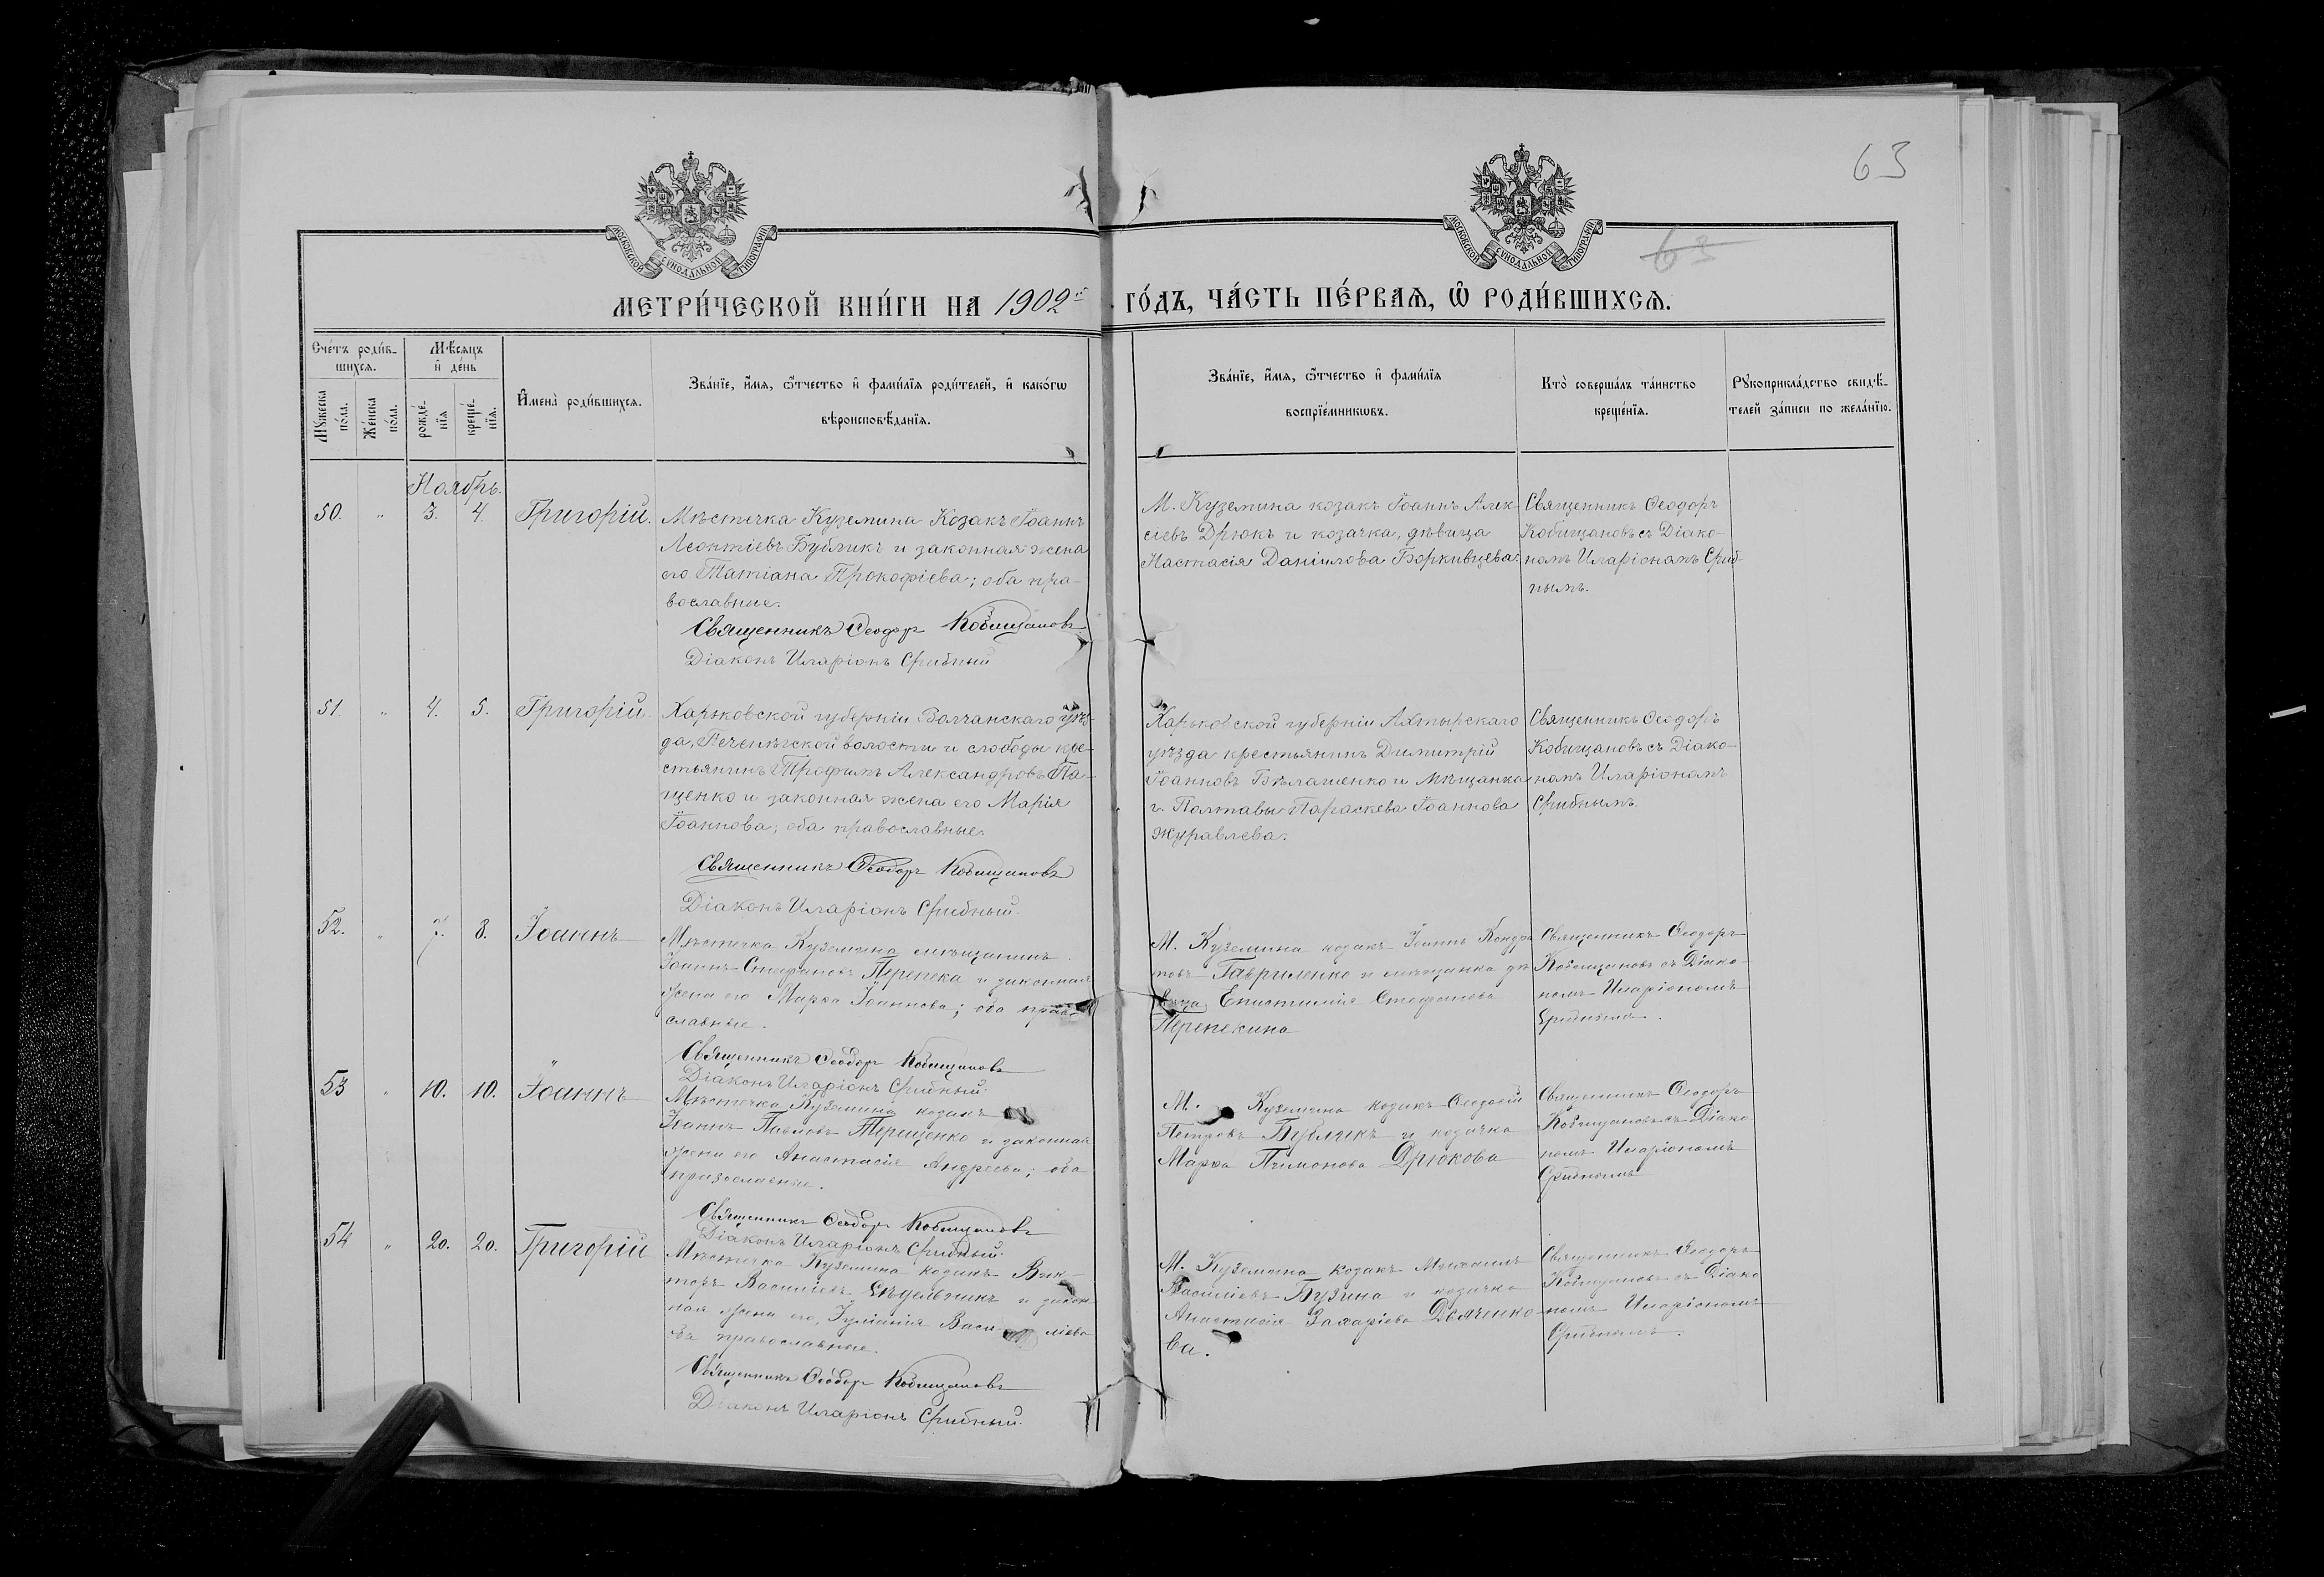 63
63
МОСКОВСКОЙ СѴНОДАЛЬНОЙ ТИПОГРАФІИ
МОСКОВСКОЙ СѴНОДАЛЬНОЙ ТИПОГРАФІИ
МЕТРИ́ЧЕСКОЙ КНИ́ГИ НА 1902й ГО́ДЪ, ЧА́СТЬ ПЕ́РВАѦ, Ѽ РОДИ́ВШИХСѦ.
Сче́тъ роди́в-
шихсѧ.
Мѣ́сѧцъ
и҆ де́нь
Мꙋ́жеска
по́ла.
Же́нска
по́ла.
рожде́-
нїѧ
креще́-
нїѧ.
И҆мена̀ роди́вшихсѧ.
Зва́нїе, и҆́мѧ, ѻ҆́тчество и҆ фами́лїѧ роди́телей, и҆ како́гѡ
вѣроисповѣ́данїѧ.
Зва́нїе, и҆́мѧ, ѻ҆́тчество и҆ фами́лїѧ
воспрїе́мникѡвъ.
Кто̀ соверша́лъ та́инство
креще́нїѧ.
Рꙋкоприкла́дство свидѣ́-
телей за́писи по жела́нїю.
Ноябрь.
50. " 3. 4. Григорій.
Мѣстечка Куземина Козакъ Іоаннъ
Леонтіевъ Бубликъ и законная жена
его Татіана Прокофіева; оба пра-
вославные.
Священникъ Ѳеодоръ Кобищановъ
Діаконъ Иларіонъ Срибный
М. Куземина козакъ Іоаннъ Алек-
сіевъ Дрюкъ и козачка, дѣвица
Настасія Даніилова Боркивцева.
Священникъ Ѳеодоръ
Кобищановъ съ Діако-
номъ Иларіономъ Сриб-
нымъ.
51. " 4. 5. Григорій.
Харьковской губерніи Волчанскаго уѣз-
да, Печенѣгской волости и слободы кре-
стьянинъ Трофимъ Александровъ Па-
щенко и законная жена его Марія
Іоаннова; оба православные.
Священникъ Ѳеодоръ Кобищановъ
Діаконъ Иларіонъ Срибный.
Харьковской губерніи Ахтырскаго
уѣзда крестьянинъ Димитрій
Іоанновъ Бѣлашенко и мѣщанка
г. Полтавы Параскева Іоаннова
Журавлева.
Священникъ Ѳеодоръ
Кобищановъ съ Діако-
номъ Иларіономъ
Срибнымъ.
52. " 7. 8. Іоаннъ
Мѣстечка Куземина мѣщанинъ
Іоаннъ Стефановъ Перепека и законная
жена его Марѳа Іоаннова; оба право-
славные.
Священникъ Ѳеодоръ Кобищановъ
Діаконъ Иларіонъ Срибный.
М. Куземина козакъ Іоаннъ Кондра
товъ Гавриленко и мѣщанка дѣ
вица Епистимія Стефанова
Перепекина
Священникъ Ѳеодоръ
Кобищановъ съ Діако-
номъ Иларіономъ
Срибнымъ.
53 " 10. 10. Іоаннъ
Мѣстечка Куземина козакъ
Іоаннъ Павловъ Терещенко и законная
жена его Анастасія Андреева; оба
православные.
Священникъ Ѳеодоръ Кобищановъ
Діаконъ Иларіонъ Срибный.
М. Куземина козакъ Ѳеодосій
Петровъ Бубликъ и козачка
Марѳа Пимонова Дрюкова
Священникъ Ѳеодоръ
Кобищановъ съ Діако
номъ Иларіономъ
Срибнымъ
54 " 20. 20. Григорій
Мѣстечка Куземина козакъ Вик-
торъ Василіевъ и закон-
ная жена его, Іуліанія Васи- ліева
оба православные.
Священникъ Ѳеодоръ Кобищановъ
Діаконъ Иларіонъ Срибный.
М. Куземина козакъ Михаилъ
Василіевъ Бузина и козачка
Анастасія Захаріева Дьяченко-
ва.
Священникъ Ѳеодоръ
Кобищановъ съ Діако
номъ Иларіономъ
Срибнымъ.